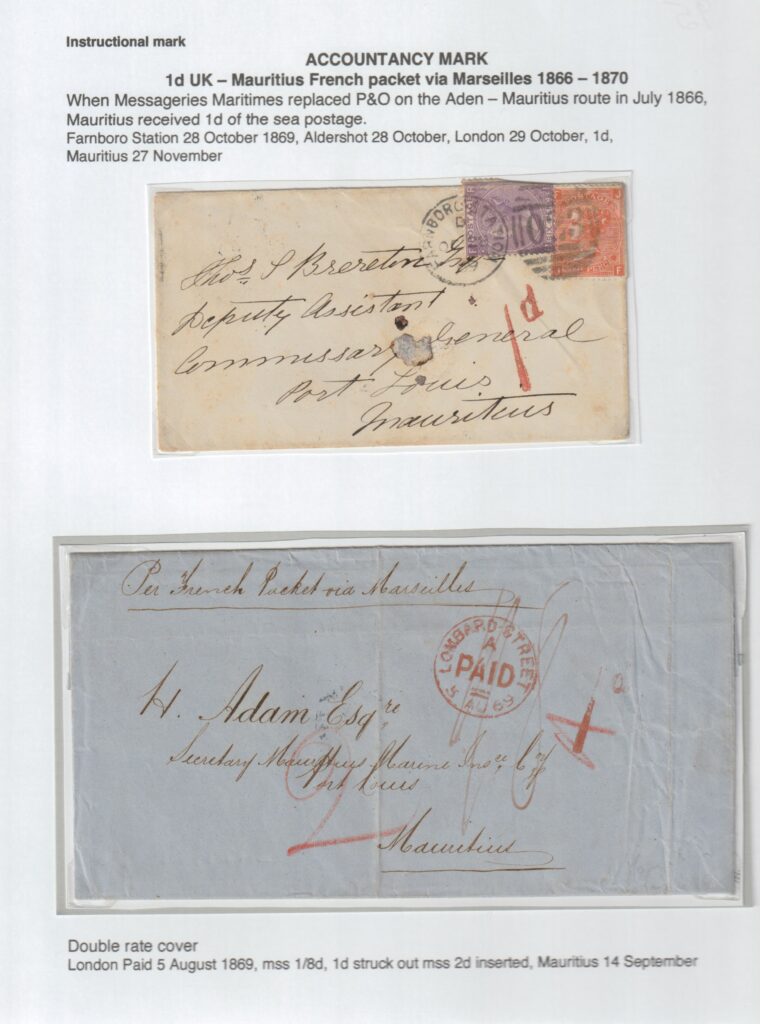 Instructional mark
ACCOUNTANCY MARK
1d UK – Mauritius French packet via Marseilles 1866 – 1870
When Messageries Maritimes replaced P&O on the Aden – Mauritius route in July 1866,
Mauritius received 1d of the sea postage.
Farnboro Station 28 October 1869, Aldershot 28 October, London 29 October, 1d,
Mauritius 27 November
Thos. S Brereton Esq
Deputy Assistant
Commissary General
Port Louis
Mauritius
1d
Per French Packet via Marseilles
LOMBARD STREET
A
PAID
5 AU 69
H. Adam Esqre
Secretary Mauritius Marine Insce Cy
Port Louis
Mauritius
2
1d
Double rate cover
London Paid 5 August 1869, mss 1/8d, 1d struck out mss 2d inserted, Mauritius 14 September